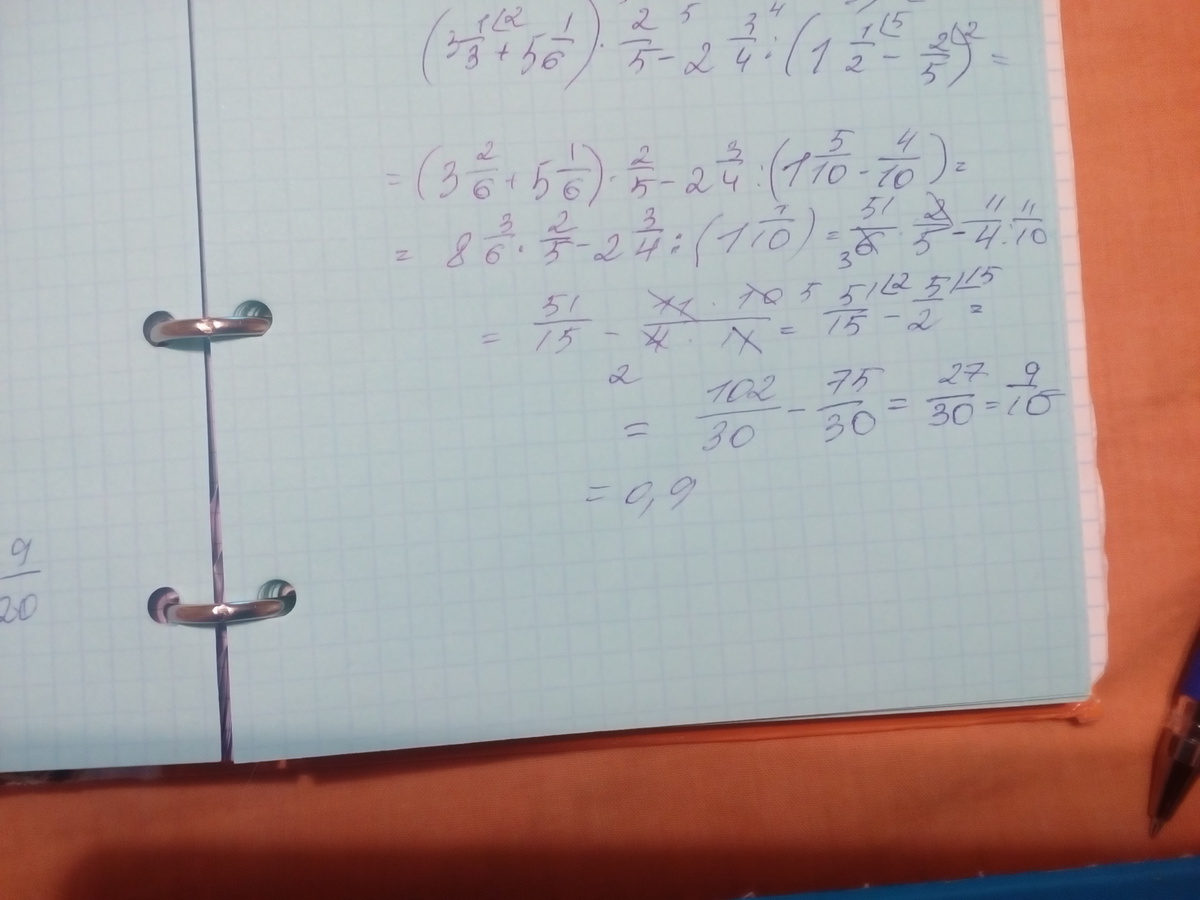 (3 1/3 + 5 1/6) · 2/5 - 2 3/4 : (1 1/2 - 2/5) =
= (3 2/6 + 5 1/6) · 2/5 - 2 3/4 : (1 5/10 - 4/10) =
= 8 3/6 · 2/5 - 2 3/4 : (1 1/10) = 51/6 · 2/5 - 11/4 : 11/10
3
= 51/15 - 11 · 10 / 4 · 11 = 5 51/15 - 5/2 =
2
= 102/30 - 75/30 = 27/30 = 9/10
= 0,9
9/20